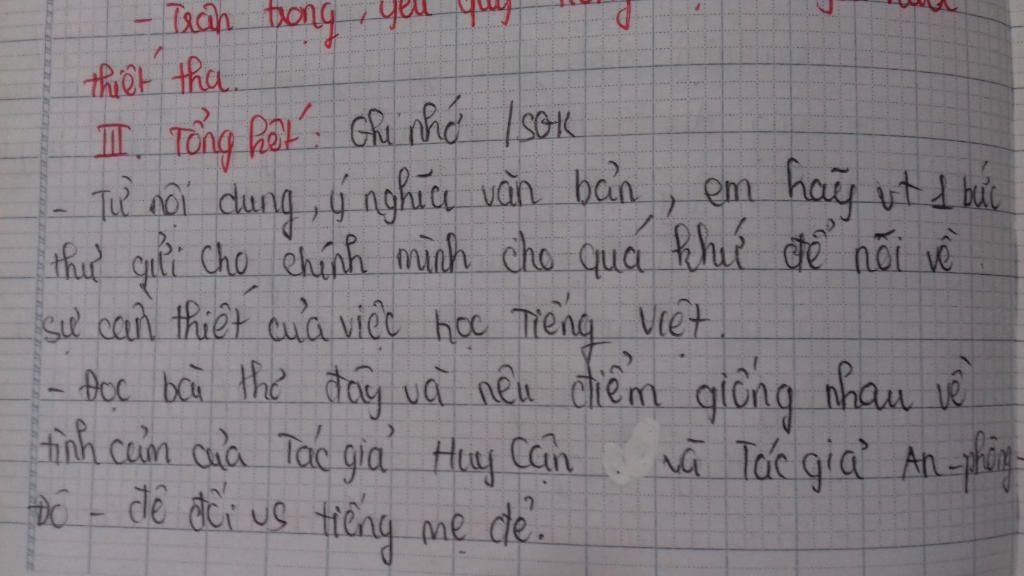 - Trân trọng, yêu quý
thiết tha.
III. Tổng kết: Ghi nhớ /SGK
- Từ nội dung, ý nghĩa văn bản, em hãy vt 1 bức
thư gửi cho chính mình cho quá khứ để nói về
sự cần thiết của việc học Tiếng Việt.
- Đọc bài thơ đây và nêu điểm giống nhau về
tình cảm của Tác giả Huy Cận và Tác giả An-phông-
Đô - đê đối vs tiếng mẹ đẻ.